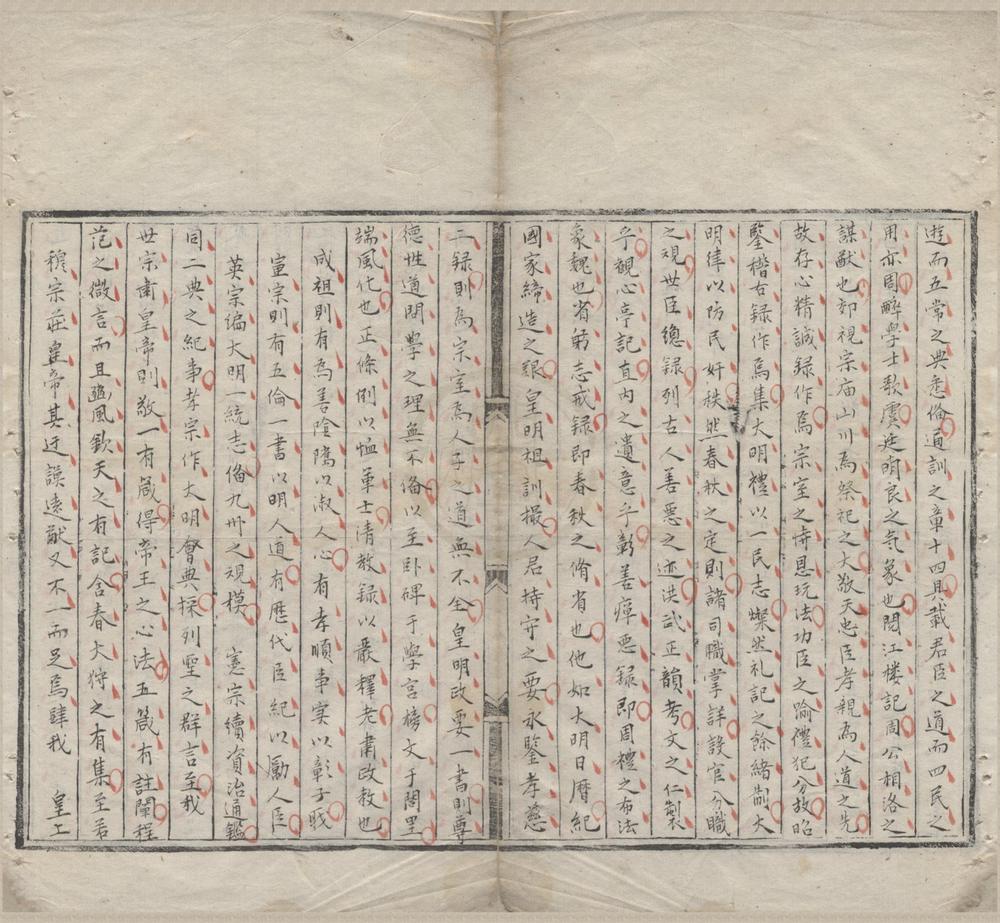 遊而五常之典悉倫通訓之章十四具載君臣之道而四民之
用亦周醉學士歌虞廷明良之氣象也閱江楼記周公相洛之
謀猷也郊視宗庙山川為祭祀之大敬天忠臣孝親為人道之先
故存心精誠録作焉宗室之恃恩玩法功臣之踰禮犯分故昭
鑒稽古録作焉集大明禮以一民志燦然礼記之餘緒制大
明律以防民奸秩然春秋之定則諸司職掌詳設官分職
之規世臣總録列古人善悪之迹洪武正韻考文之仁製
乎觀心亭記直内之遺意乎彰善癉悪録即周禮之布法
象魏也省躬志戒録即春秋之脩省也他如大明日暦紀
國家締造之艱皇明祖訓撮人君持守之要永鑒孝慈
二録則為宗室為人子之道無不全皇明政要一書則尊
德性道問學之理無不俻以至卧碑于學宮榜文于閭里
端風化也正條例以恤軍士清教録以嚴釋老肅政教也
成祖則有為善陰隲以淑人心有孝順事实以彰子戝
宣宗則有五倫一書以明人道有歴代臣紀以勵人臣
英宗徧大明一統志俻九卅之規模 憲宗續資治通鑑
同二典之紀事孝宗作大明會典採列聖之群言至我
世宗肅皇帝則敬一有箴得帝王之心法五箴有註闡程
范之微言而且遡風欽天之有記含春大狩之有集至若
穆宗莊皇帝其迂謨遠猷又不一而足焉肆我 皇上